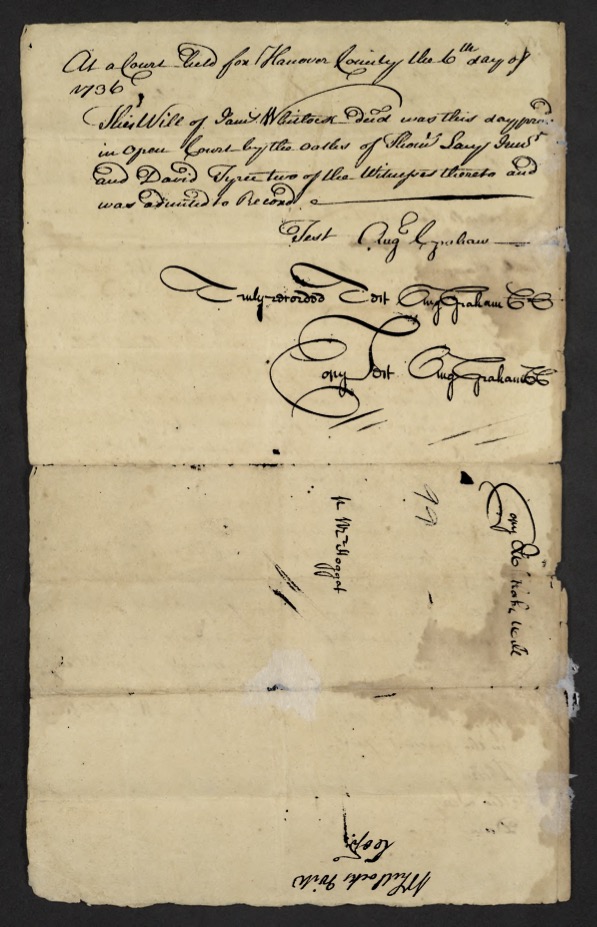 At a Court held for Hanover County the 6th day of
1736
This Will of Jams Whitlock decd was this day prov
in open Court by the oathes of Thoms
and David Tyree two of the Witnesses thereto and
was admitted to Record.
Test Aug Graham
Truly recorded Test Aug Graham CC
Copy Test Aug Graham CC
Copy
99
p Mr Hoggat
Whitlocks Will
Copy